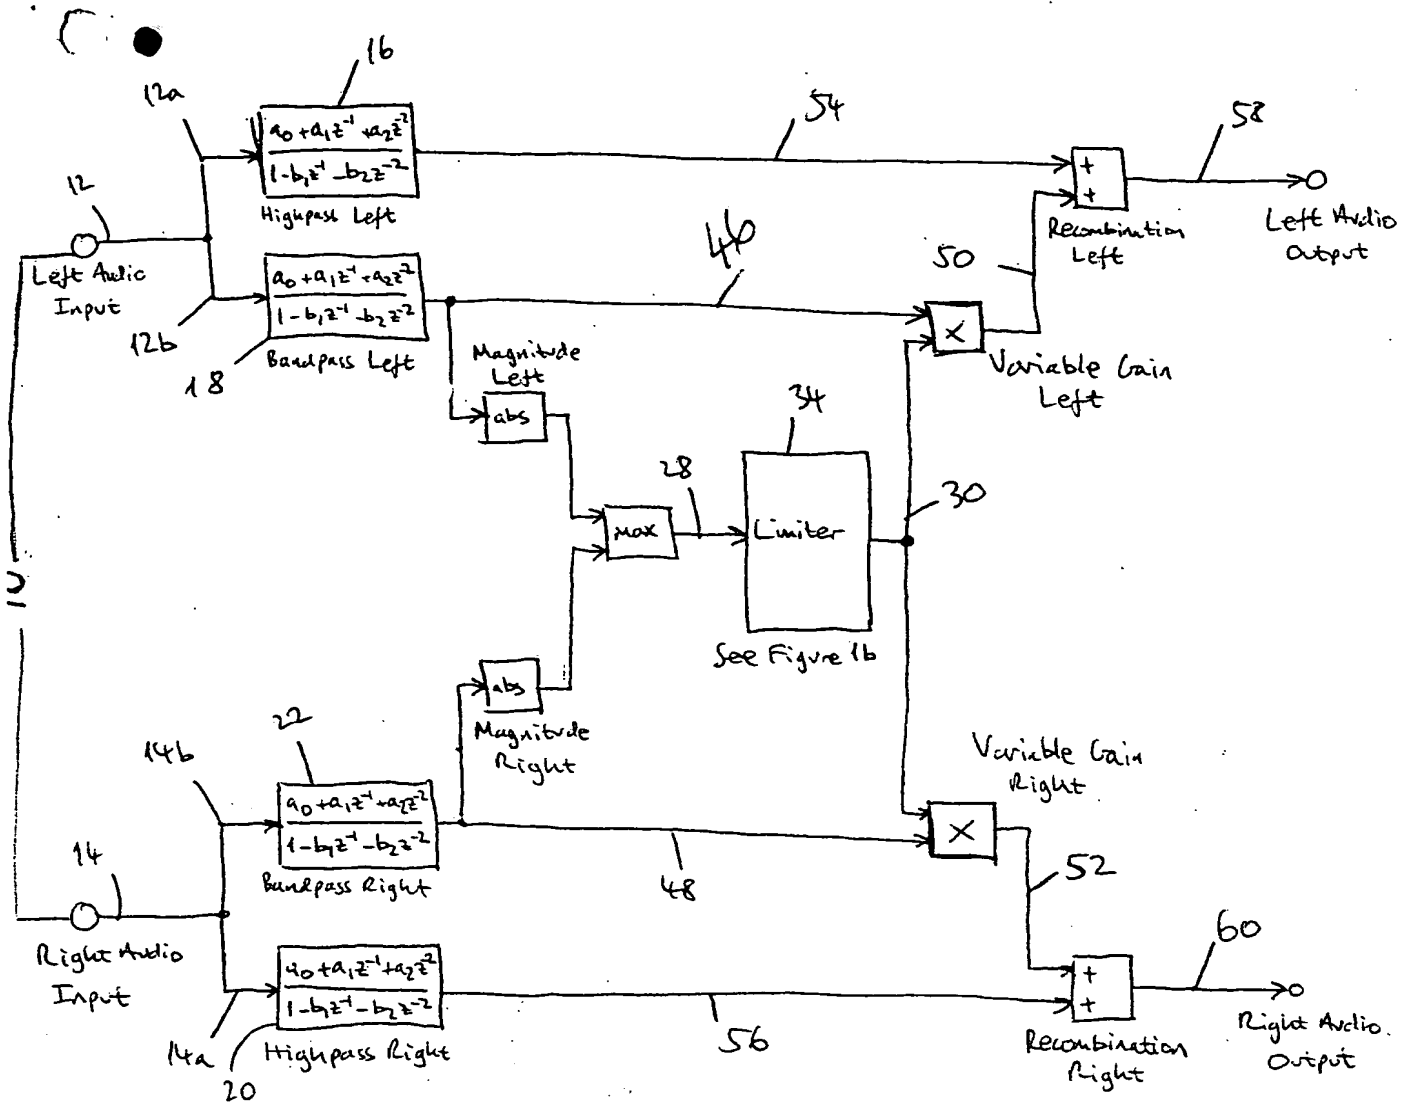 16
12a
54
58
a₀ + a₁z⁻¹ + a₂z⁻²
1 - b₁z⁻¹ - b₂z⁻²
Highpass Left
12
+
+
Recombination
Left
Left Audio
Output
Left Audio
Input
a₀ + a₁z⁻¹ + a₂z⁻²
1 - b₁z⁻¹ - b₂z⁻²
Bandpass Left
12b
18
46
50
X
Variable Gain
Left
Magnitude
Left
abs
34
28
max
Limiter
30
See Figure 1b
10
abs
Magnitude
Right
22
14b
a₀ + a₁z⁻¹ + a₂z⁻²
1 - b₁z⁻¹ - b₂z⁻²
Bandpass Right
Variable Gain
Right
X
48
52
14
Right Audio
Input
a₀ + a₁z⁻¹ + a₂z⁻²
1 - b₁z⁻¹ - b₂z⁻²
Highpass Right
14a
20
56
60
+
+
Recombination
Right
Right Audio
Output